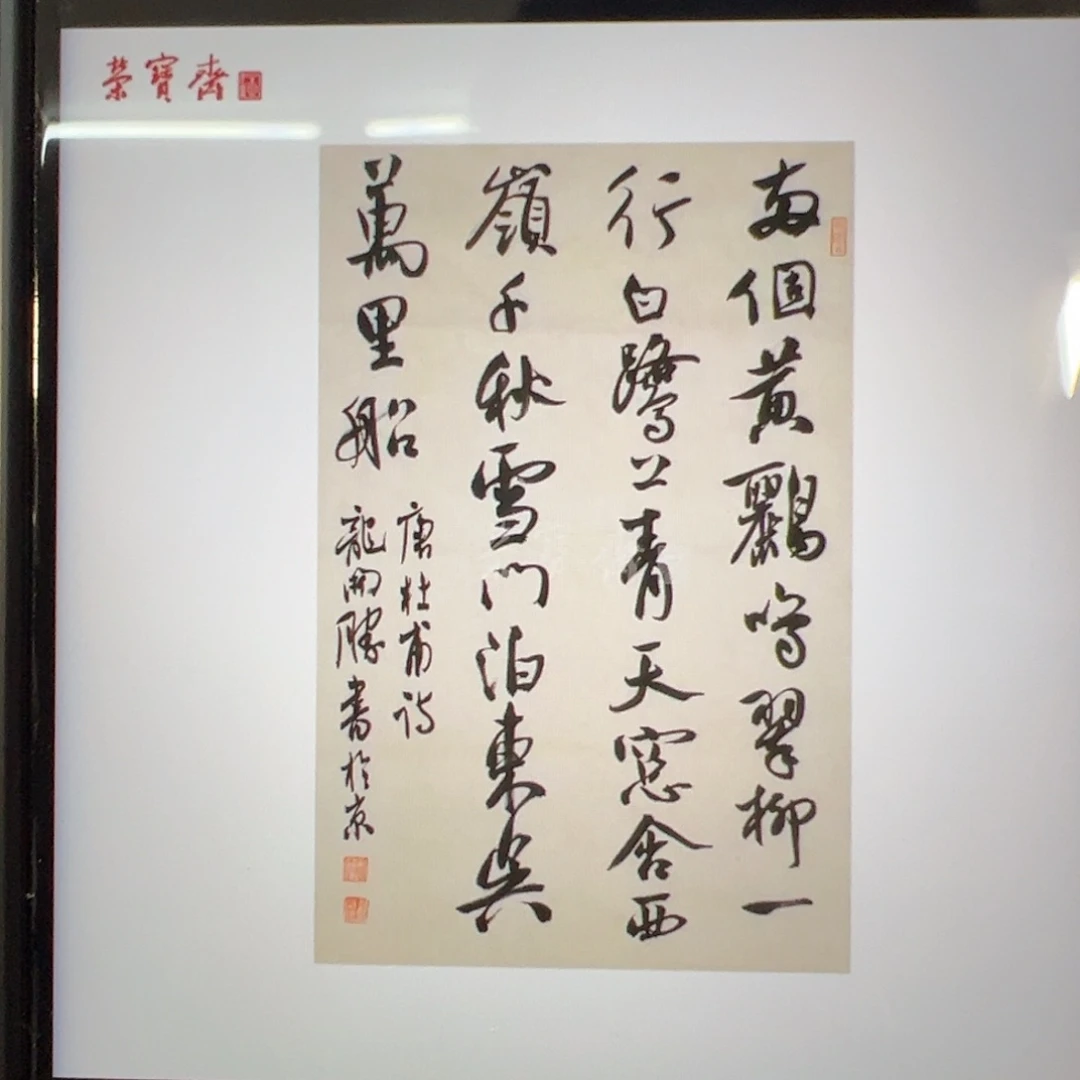 榮寶齋
两個黄鸝鳴翠柳一
行白鷺上青天窓含西
嶺千秋雪門泊東吳
萬里船
唐杜甫诗
龍開勝書於京